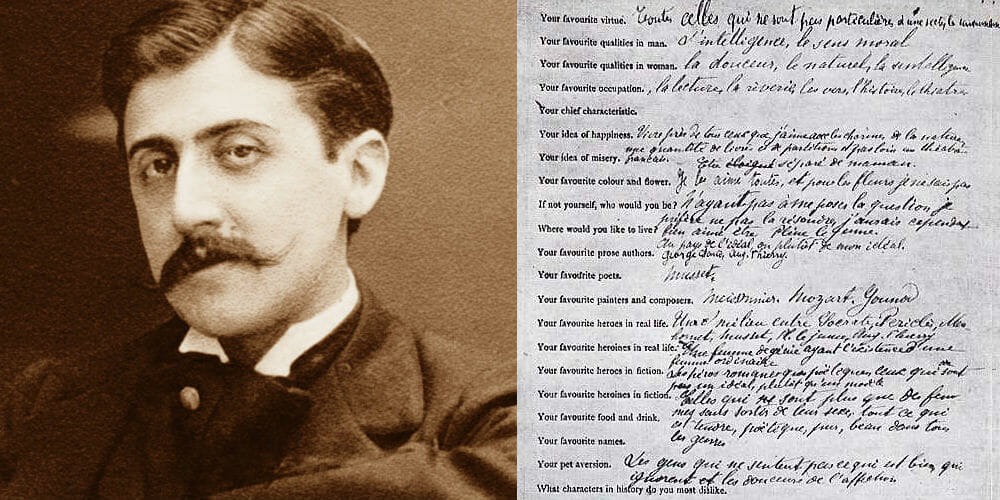 Your favourite virtue. Toutes celles qui ne sont pas particulières à une secte, les universelles
Your favourite qualities in man. L'intelligence, le sens moral
Your favourite qualities in woman. La douceur, le naturel, l'intelligence
Your favourite occupation. La lecture, la rêverie, les vers, l'histoire, le théâtre
Your chief characteristic.
Your idea of happiness. Vivre près de tous ceux que j'aime avec les charmes de la nature,
une quantité de livres et de partitions, et pas loin un théâtre
français.
Your idea of misery. Etre séparé de maman.
Your favourite colour and flower. Je les aime toutes, et pour les fleurs, je ne sais pas
If not yourself, who would you be? N'ayant pas à me poser la question, je
préfère ne pas la résoudre, j'aurais cependant
bien aimé être Pline le jeune.
Where would you like to live? Au pays de l'idéal, ou plutôt de mon idéal.
Your favourite prose authors. George Sand, Aug. Thierry.
Your favourite poets. Musset.
Your favourite painters and composers. Meissonnier. Mozart. Gounod
Your favourite heroes in real life. Un milieu entre Socrate, Périclès, Mahomet, Musset, Pline le jeune, Aug. Thierry
Your favourite heroines in real life. Une femme de génie ayant l'existence d'une
femme ordinaire
Your favourite heroes in fiction. Les héros romanesques poétiques, ceux qui sont
un idéal plutôt qu'un modèle
Your favourite heroines in fiction. Celles qui ne sont plus que des femmes sans sortir de leur sexe, tout ce qui
est tendre, poétique, pur, beau dans tous
les genres
Your favourite food and drink.
Your favourite names.
Your pet aversion. Les gens qui ne sentent pas ce qui est bien, qui
ignorent les douceurs de l'affection
What characters in history do you most dislike.